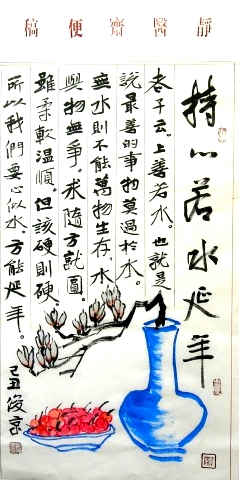 靜醫齋便稿
持心若水延年
老子云。上善若水。也就是
說最善的事物莫過於水。
無水則不能萬物生存。水
與物無爭。求隨方就圓。
雖柔軟溫順。但該硬則硬。
所以我們要心似水。方能延年。
己丑俊京